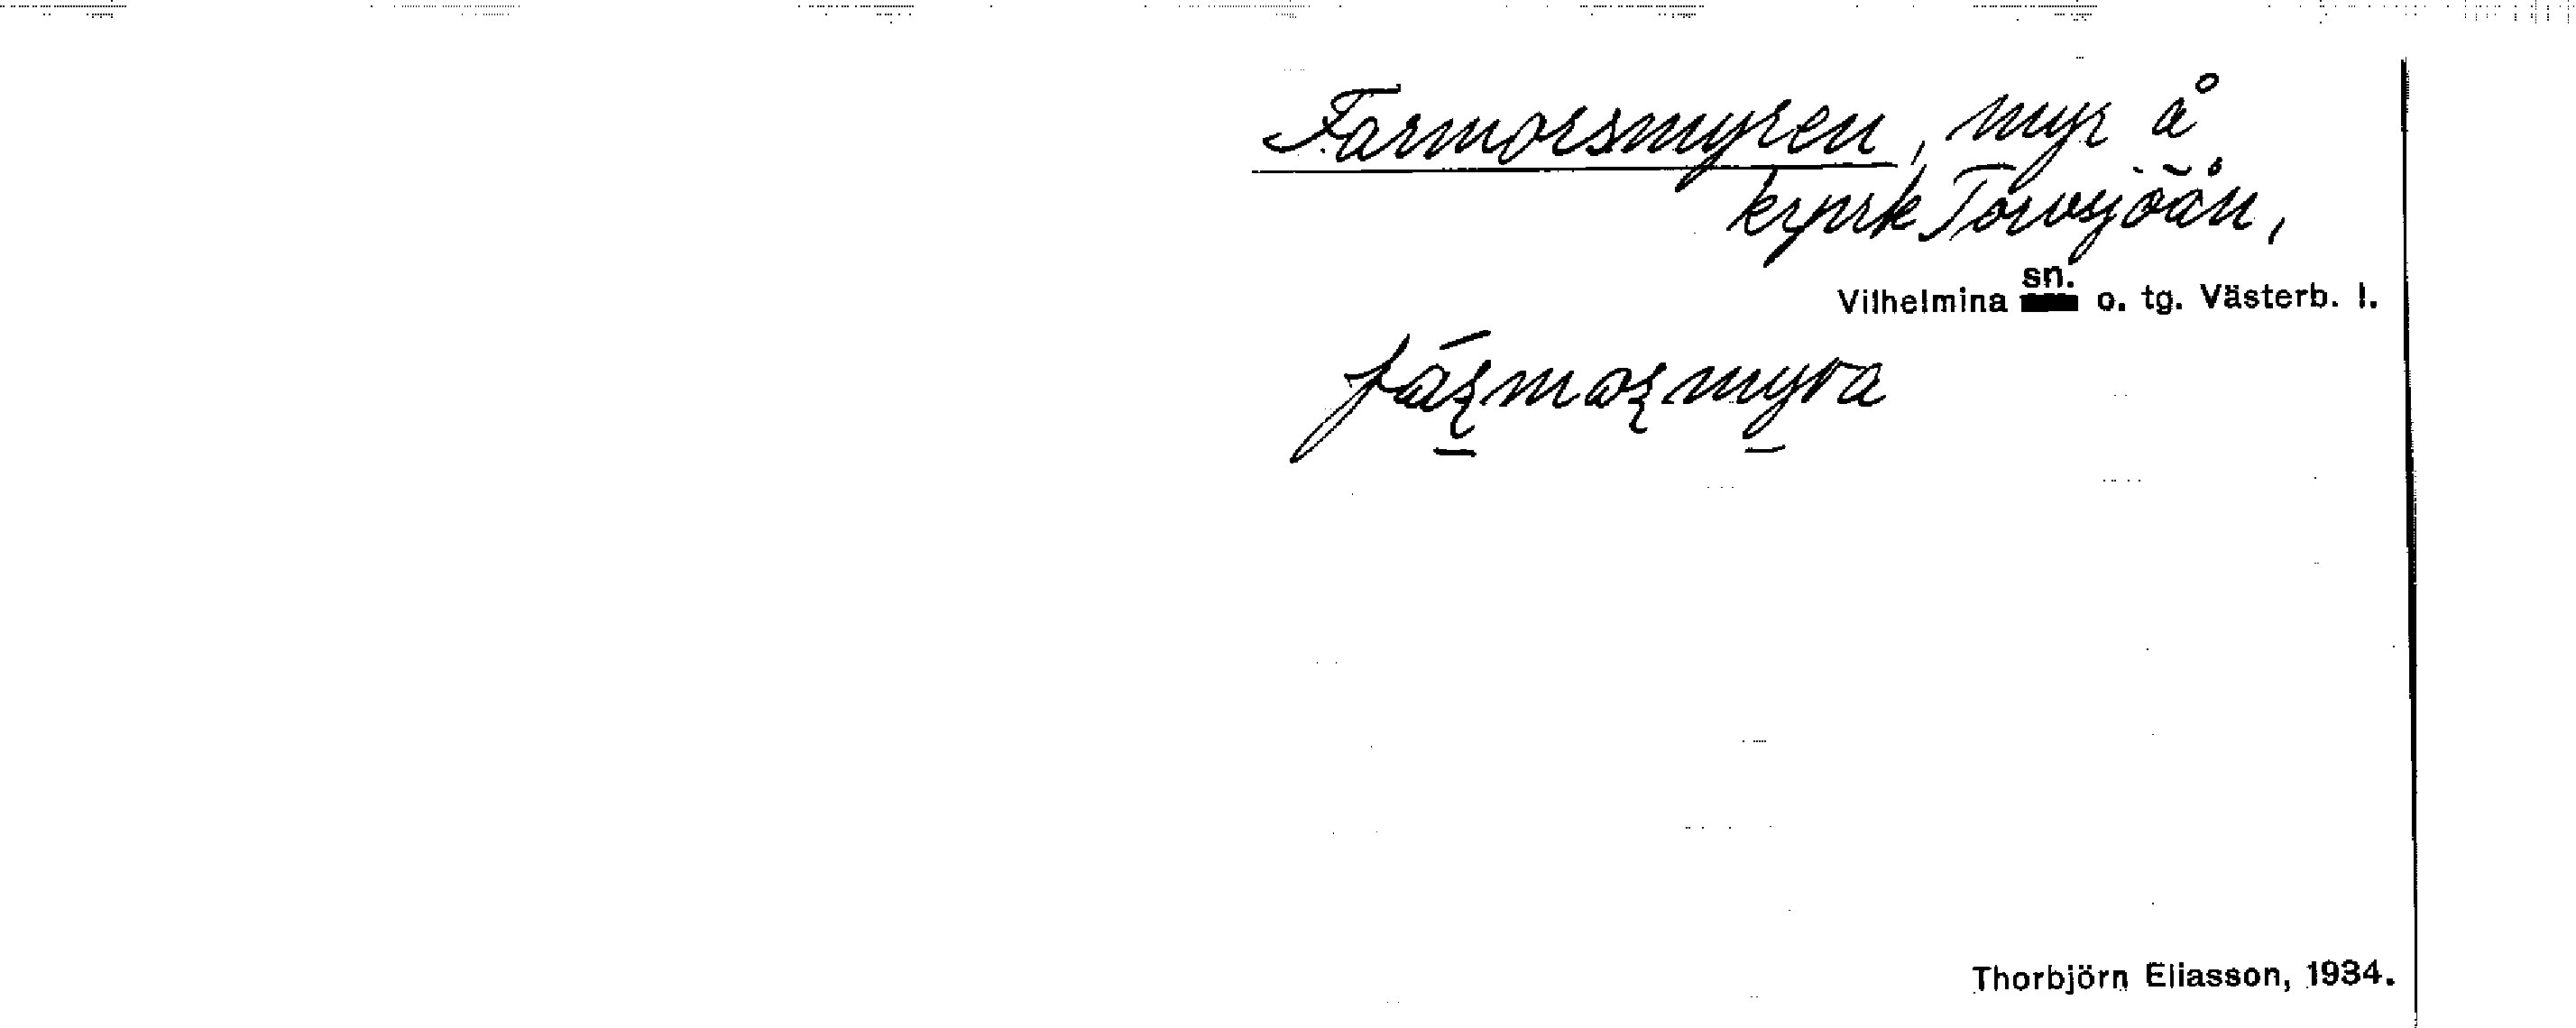 Farmorsmyren, myr å
krpark Torvsjöån,
Vilhelmina sn. o. tg. Västerb. l.
Thorbjörn Eliasson, 1934.